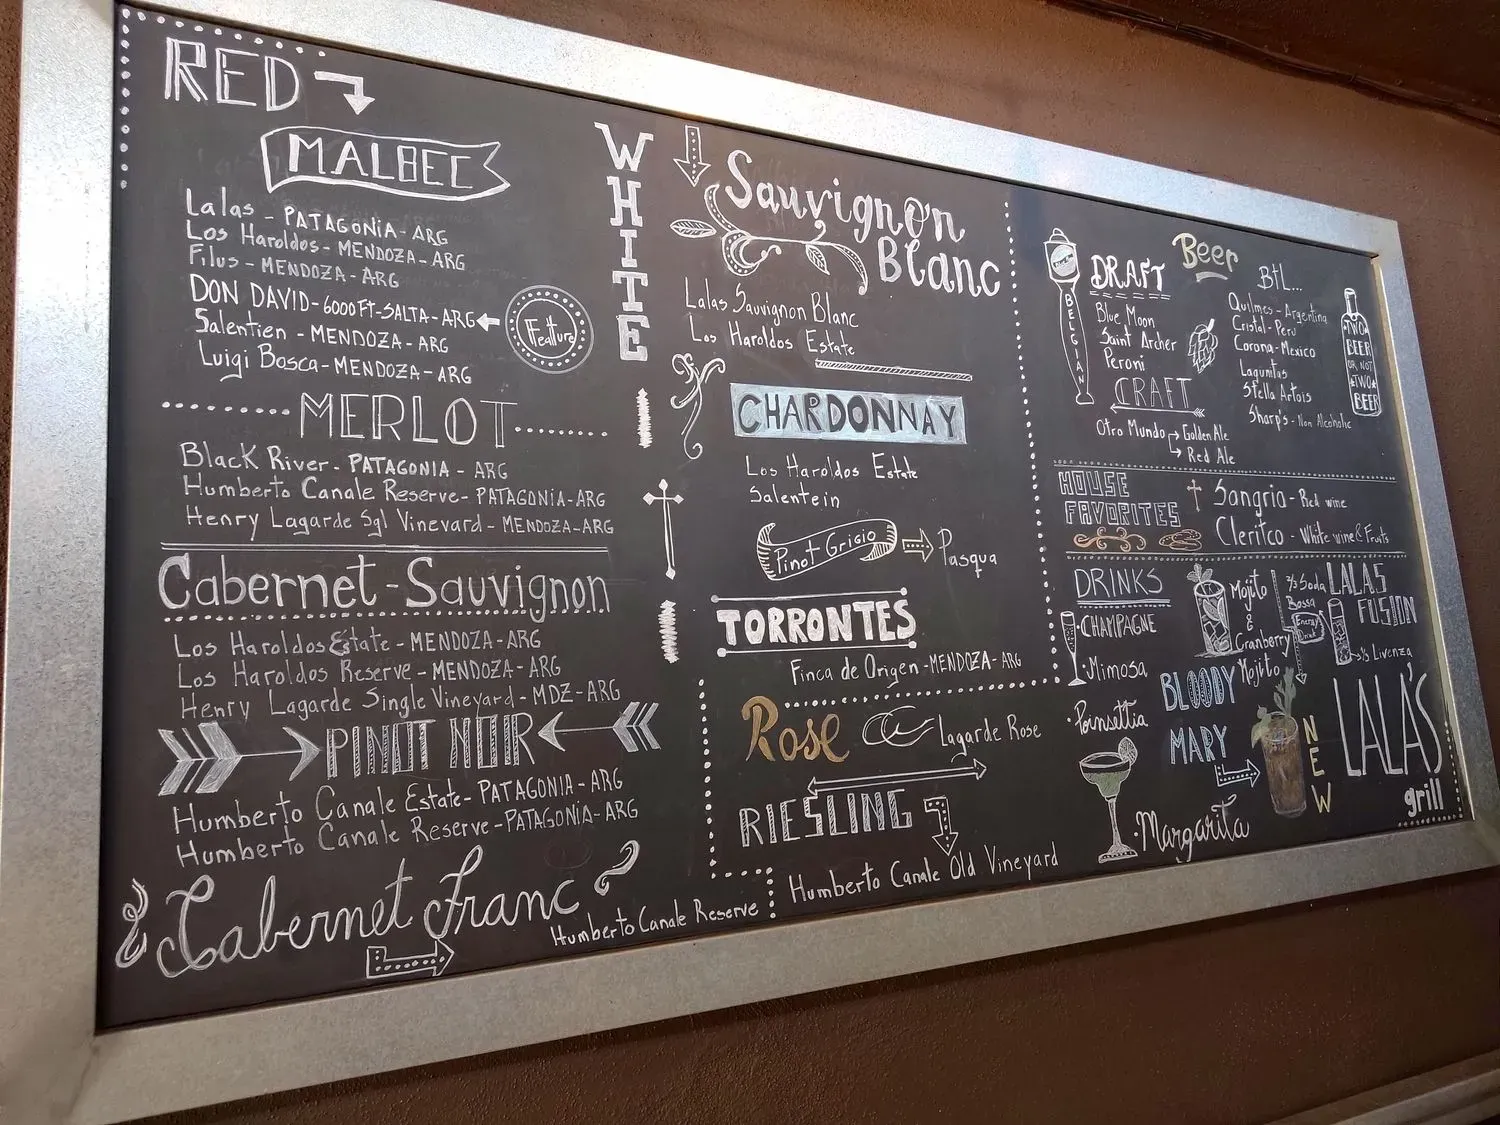 RED
MALBEC
Lalas - PATAGONIA - ARG
Los Haroldos - MENDOZA - ARG
Filus - MENDOZA - ARG
DON DAVID - 6000 FT - SALTA - ARG
Feature
Salentien - MENDOZA - ARG
Luigi Bosca - MENDOZA - ARG
MERLOT
Black River - PATAGONIA - ARG
Humberto Canale Reserve - PATAGONIA - ARG
Henry Lagarde Sgl Vinevard - MENDOZA - ARG
Cabernet-Sauvignon
Los Haroldos Estate - MENDOZA - ARG
Los Haroldos Reserve - MENDOZA - ARG
Henry Lagarde Single Vineyard - MDZ - ARG
PINOT NOIR
Humberto Canale Estate - PATAGONIA - ARG
Humberto Canale Reserve - PATAGONIA - ARG
Cabernet Franc
Humberto Canale Reserve
WHITE
Sauvignon
Blanc
Lalas Sauvignon Blanc
Los Haroldos Estate
CHARDONNAY
Los Haroldos Estate
Salentein
Pinot Grigio
Pasqua
TORRONTES
Finca de Origen - MENDOZA - ARG
Rose
Lagarde Rose
RIESLING
Humberto Canale Old Vineyard
Beer
BELGIAN
DRAFT
Blue Moon
Saint Archer
Peroni
CRAFT
Otro Mundo
Golden Ale
Red Ale
BtL...
Quilmes - Argentina
Cristal - Peru
Corona - Mexico
Lagunitas
Stella Artois
Sharp's - Non Alcoholic
TWO
BEER
OR NOT
TWO
BEER
HOUSE
FAVORITES
Sangria - Red wine
Cleritco - White wine & Fruits
DRINKS
CHAMPAGNE
Mimosa
Poinsettia
Mojito
&
Cranberry
Mojito
BLOODY
MARY
NEW
Margarita
LALA'S
FUSION
Soda
Bossa
Energy
Drink
Livenza
LALA'S
grill